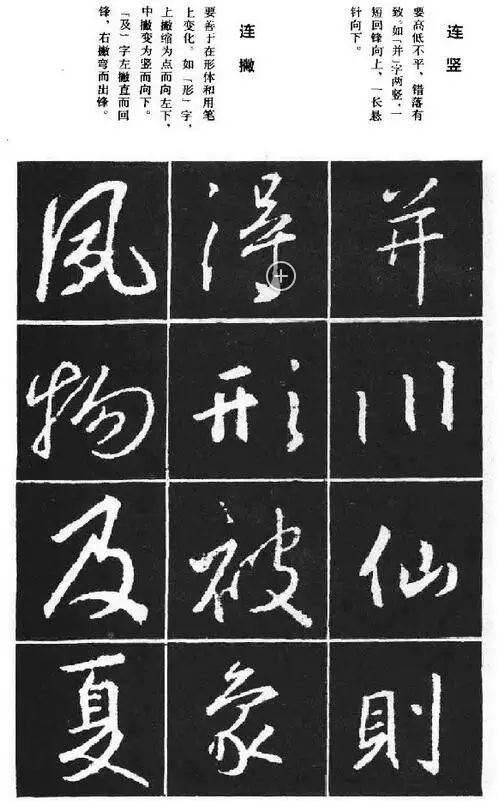 连竖
要高低不平、错落有
致。如「并」字两竖，一
短回锋向上、一长悬
针向下。
连撇
要善于在形体和用笔
上变化。如「形」字，
上撇缩为点而向左下，
中撇变为竖而向下。
「及」字左撇直而回
锋，右撇弯而出锋。
并川仙則
得形被象
風物及夏